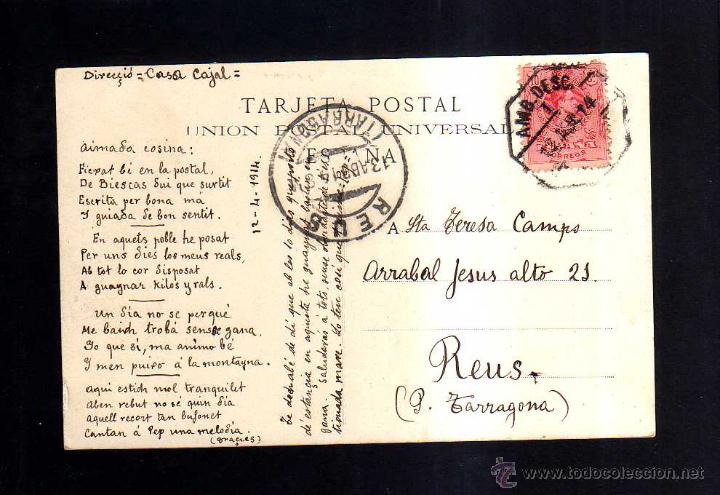 Direcció = Casa Cajal =
TARJETA POSTAL
UNION POSTAL UNIVERSAL
ESPAÑA
Aimada cosina:
Fixat bé en la postal,
De Biescas sui que surtit
Escrita per bona má
I guiada de bon sentit.
En aquets poble he posat
Per uns dies los meus reals,
Ab tot lo cor disposat
A guagnar kilos y rals.
Un dia no se perqué
Me baich trobá sense gana.
Jo que si, ma animo bé
I men puixo á la montayna.
Aqui estich mol tranquilet
Aben rebut no sé quin dia
aquell recort tan bufonet
Cantan á Pep una melodia.
(Gracies)
12-4-1914.
de estancia en aqueta he guaynat
gana. Saludeas á tots, sense
mare. Lo teu cosi que
A Sta Teresa Camps
Arrabal Jesus alto 21.
Reus.
(P. Tarragona)
REUS
TARRAGONA
AMB. DESC.
CORREOS
todocoleccion.net